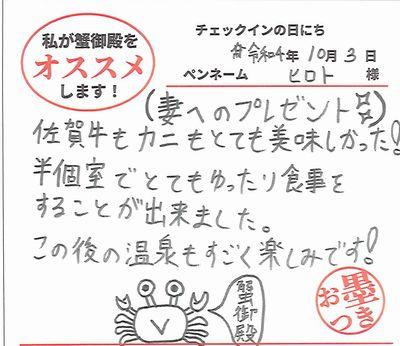 私が蟹御殿を
オススメ
します！
チェックインの日にち
令和4年 10月 3日
ペンネーム ヒロト 様
(妻へのプレゼント)
佐賀牛もカニもとても美味しかった!
半個室でとてもゆったり食事を
することが出来ました。
この後の温泉もすごく楽しみです!
蟹御殿
お墨つき